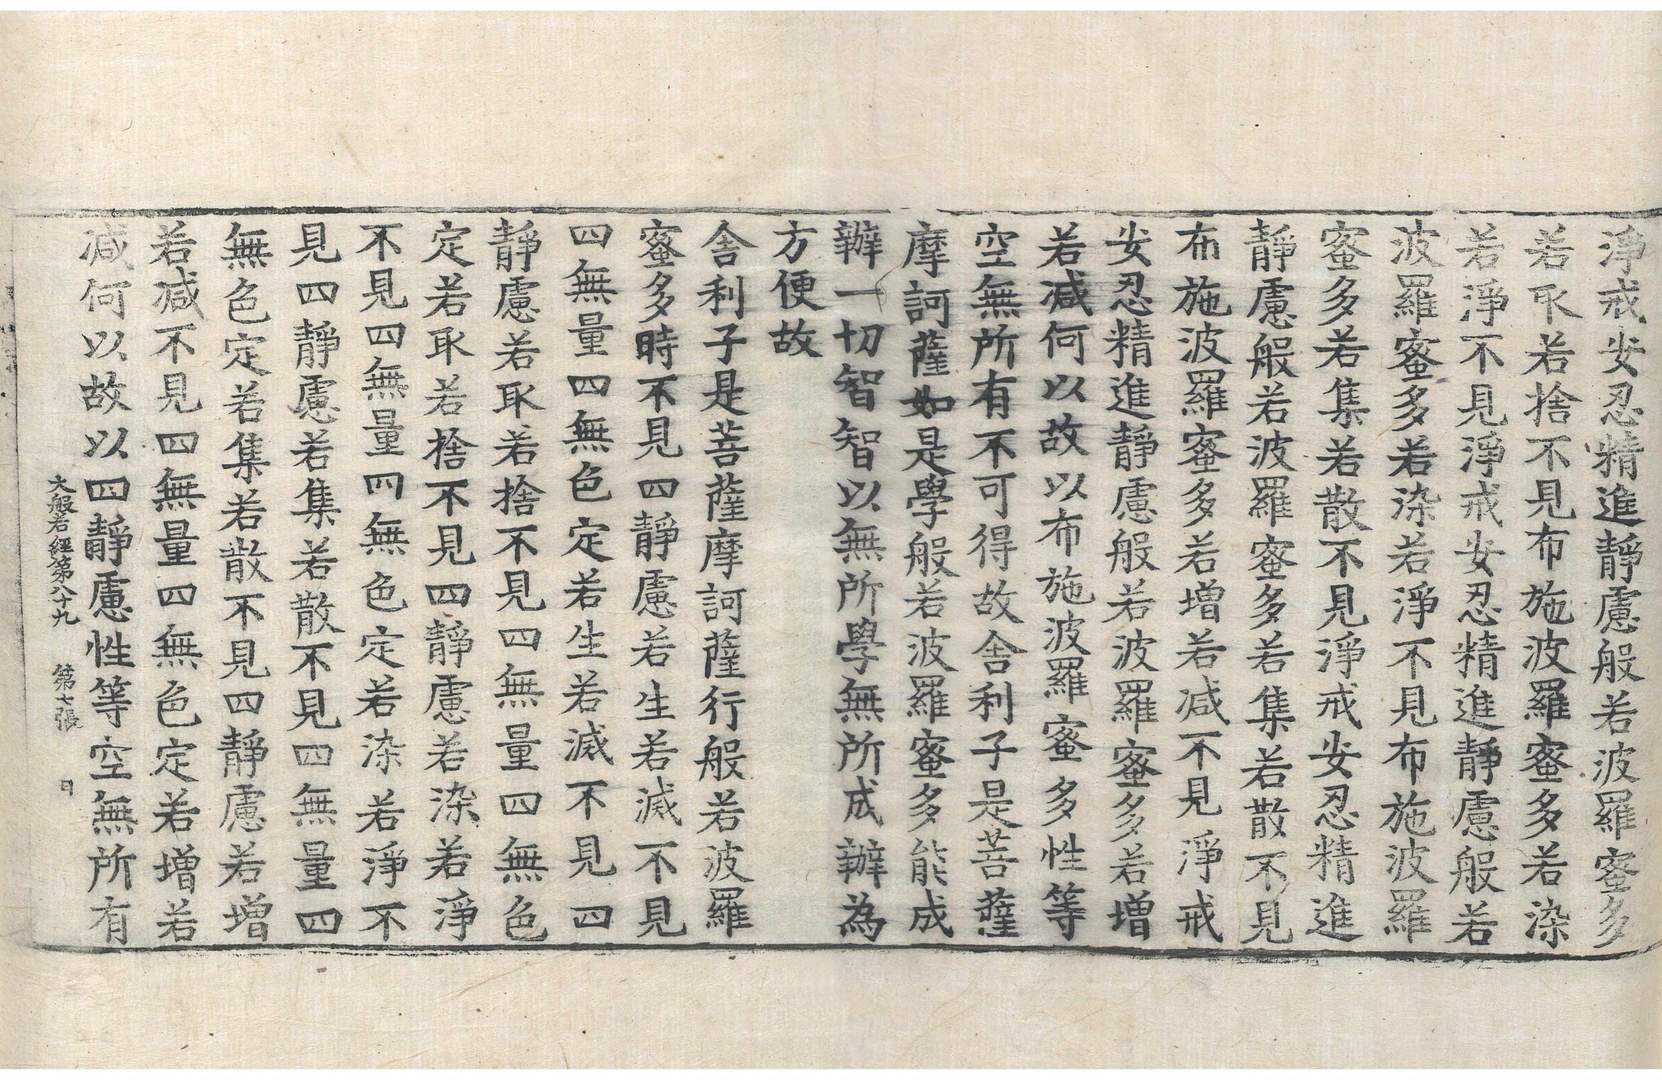 淨戒安忍精進靜慮般若波羅蜜多
若取若捨不見布施波羅蜜多若染
若淨不見淨戒安忍精進靜慮般若
波羅蜜多若染若淨不見布施波羅
蜜多若集若散不見淨戒安忍精進
靜慮般若波羅蜜多若集若散不見
布施波羅蜜多若增若减不見淨戒
安忍精進靜慮般若波羅蜜多若增
若减何以故以布施波羅蜜多性等
空無所有不可得故舍利子是菩薩
摩訶薩如是學般若波羅蜜多能成
辦一切智智以無所學無所成辦為
方便故
舍利子是菩薩摩訶薩行般若波羅
蜜多時不見四靜慮若生若滅不見
四無量四無色定若生若滅不見四
靜慮若取若捨不見四無量四無色
定若取若捨不見四靜慮若染若淨
不見四無量四無色定若染若淨不
見四靜慮若集若散不見四無量四
無色定若集若散不見四靜慮若增
若减不見四無量四無色定若增若
减何以故以四靜慮性等空無所有
大般若經第八十九 第七張 日